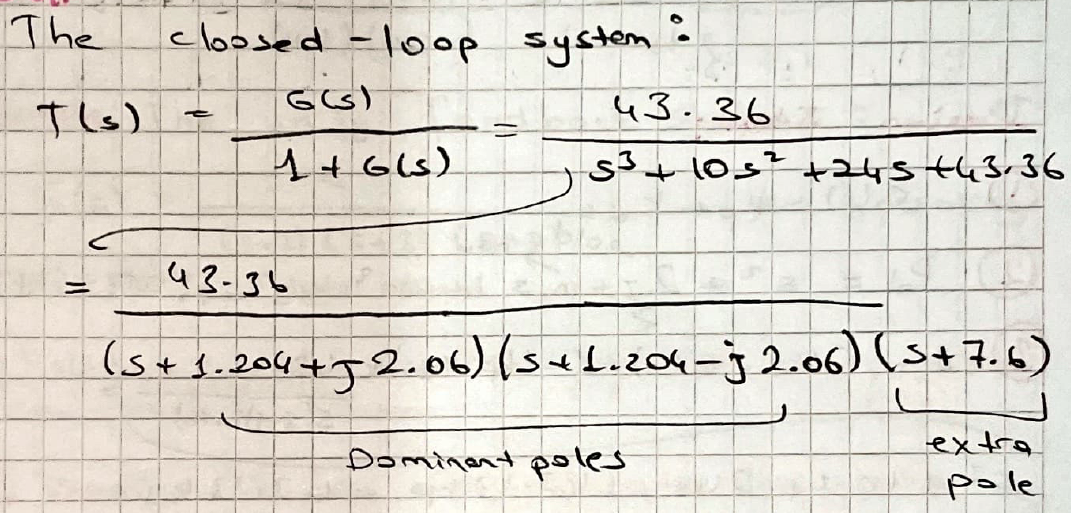 The cloosed-loop system:
T(s) = G(s) / 1 + G(s) = 43.36 / s³ + 10s² + 24s + 43.36
= 43.36 / (s + 1.204 + j 2.06) (s + 1.204 - j 2.06) (s + 7.6)
Dominant poles extra pole